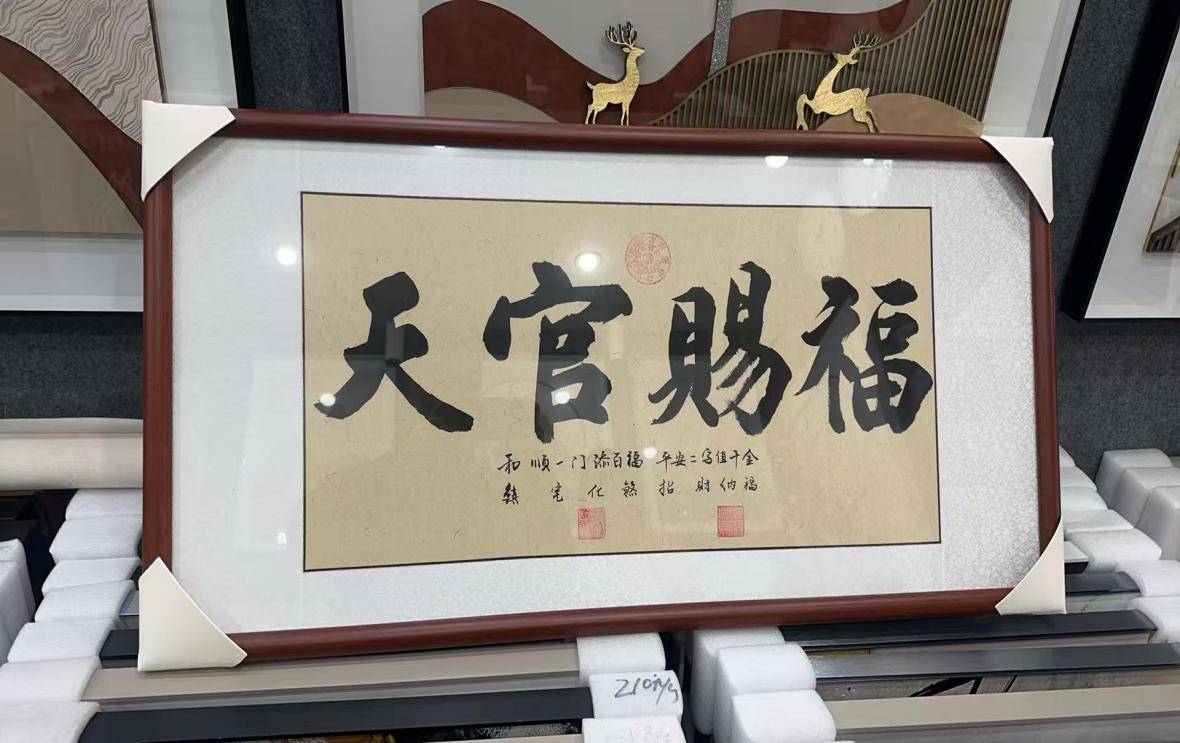 天官赐福
和顺一门添百福 平安二字值千金
镇宅化煞 招财纳福